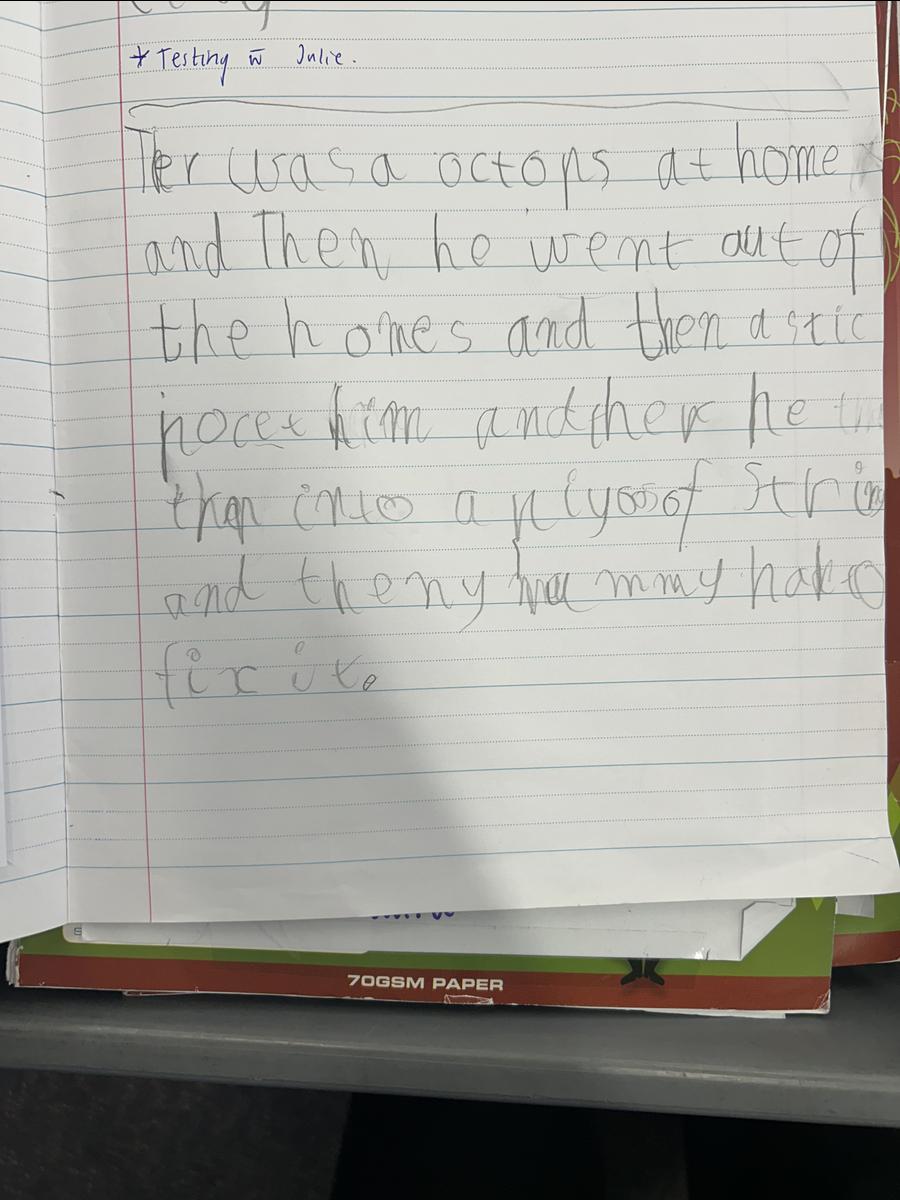 * Testing w̄ Julie.
Ter was a octops at home
and Then he went aut of
the homes and then a stic
pocet him and then he
then into a piyoos of Strin
and then y mummy hato
fix it.
70GSM PAPER